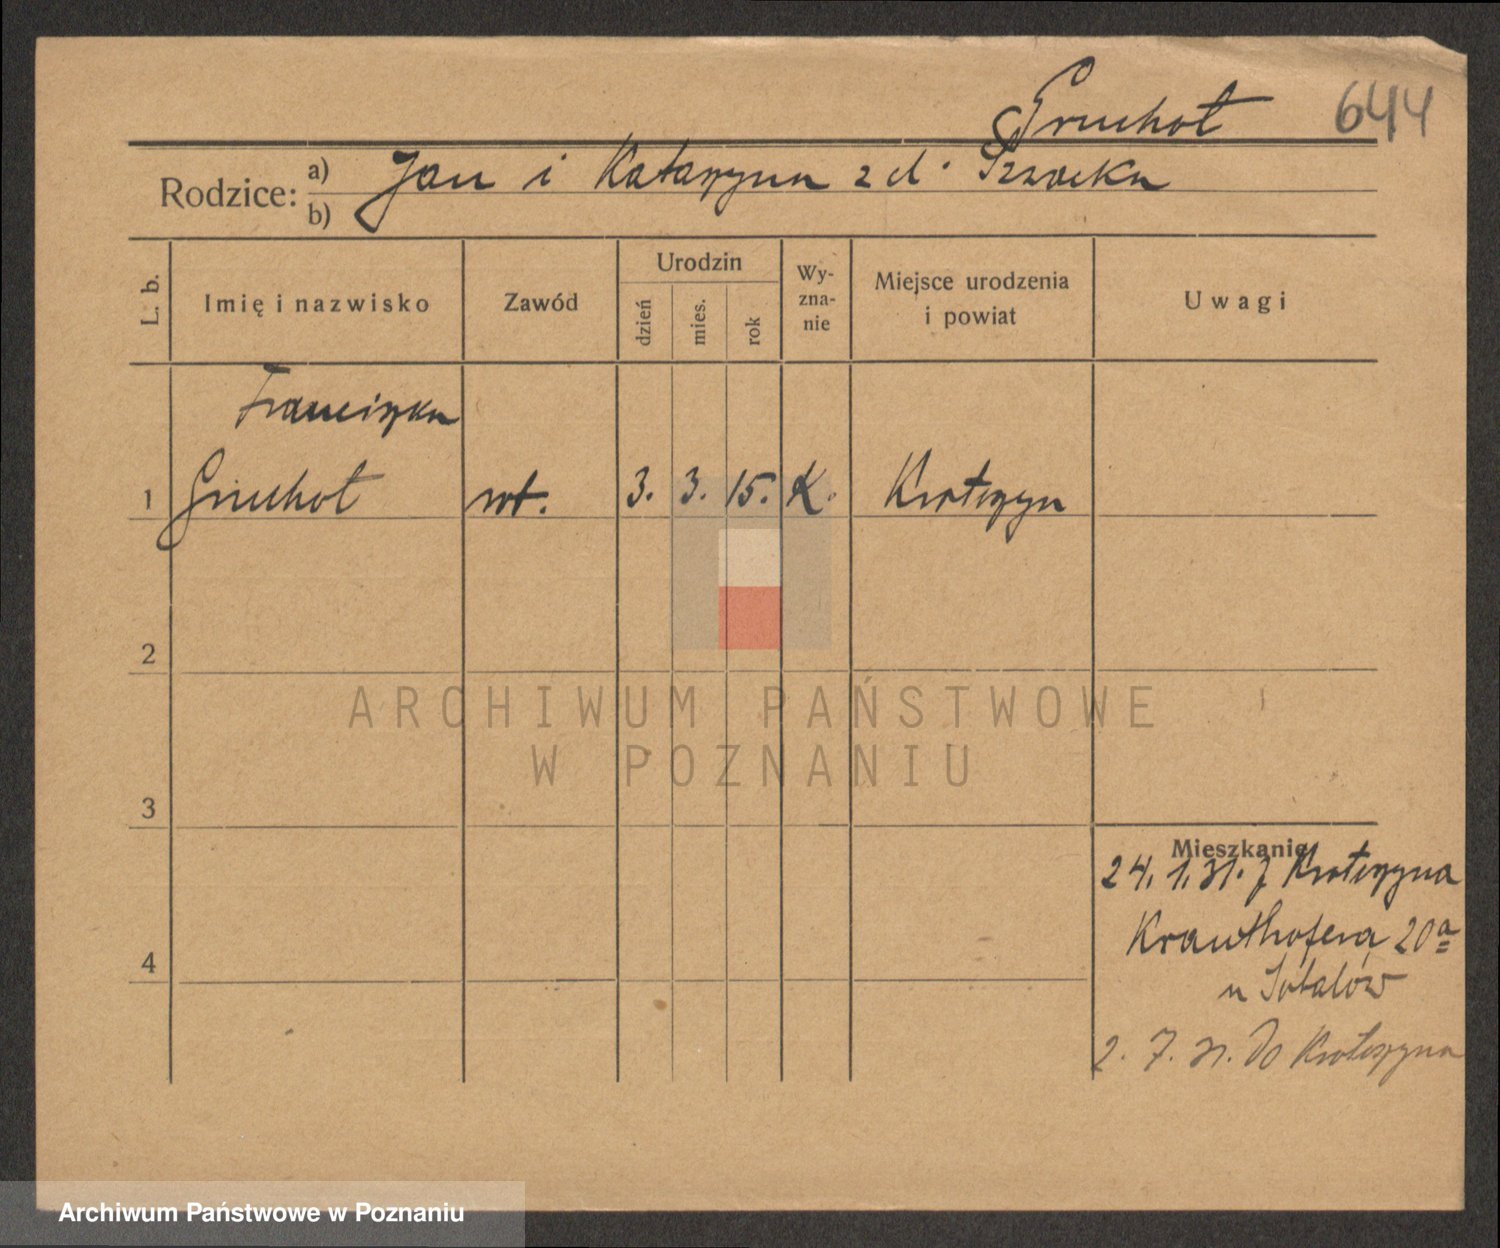 Gruchot 644
Rodzice: a) Jan i Katarzyna z d.
b)
L. b. Imię i nazwisko Zawód Urodzin dzień mies. rok Wy- zna- nie Miejsce urodzenia i powiat Uwagi
Franciszka
1 Gruchot 3. 3. 15. K. Krotoszyn
2
3
4
Mieszkanie
24. 1. 31. z Krotoszyna
Krauthofera 20a
u
2. 7. 31. do Krotoszyna
ARCHIWUM PAŃSTWOWE
W POZNANIU
Archiwum Państwowe w Poznaniu